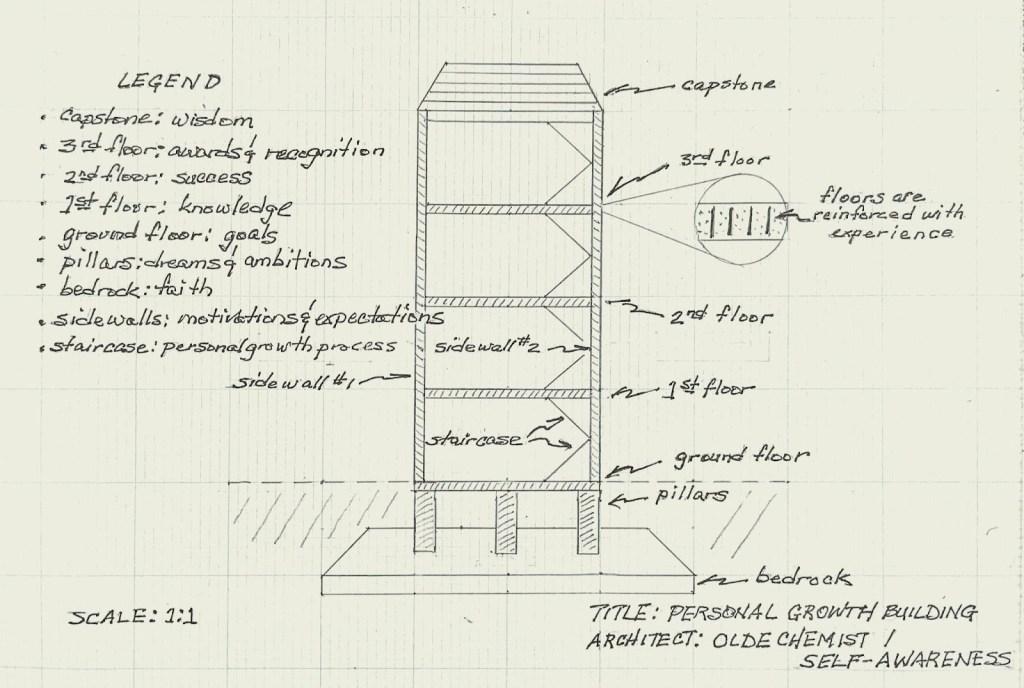 LEGEND
• capstone: wisdom
• 3rd floor: awards & recognition
• 2nd floor: success
• 1st floor: knowledge
• ground floor: goals
• pillars: dreams & ambitions
• bedrock: faith
• sidewalls: motivations & expectations
• staircase: personal growth process
capstone
3rd floor
floors are
reinforced with
experience
2nd floor
sidewall #2
sidewall #1
1st floor
staircase
ground floor
pillars
bedrock
SCALE: 1:1
TITLE: PERSONAL GROWTH BUILDING
ARCHITECT: OLDE CHEMIST /
SELF-AWARENESS